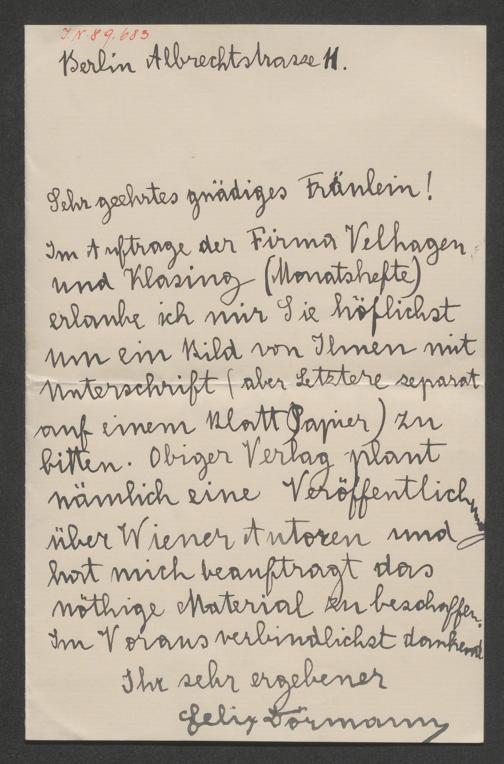 I.N. 89.683
Berlin Albrechtstrasse 11.
Sehr geehrtes gnädiges Fräulein!
Im Auftrage der Firma Velhagen
und Klasing (Monatshefte)
erlaube ich mir Sie höflichst
um ein Bild von Ihnen mit
Unterschrift (aber Letztere separat
auf einem Blatt Papier) zu
bitten. Obiger Verlag plant
nämlich eine Veröffentlichung
über Wiener Autoren und
hat mich beauftragt das
nöthige Material zu beschaffen.
Im Voraus verbindlichst dankend
Ihr sehr ergebener
Felix Dörmann